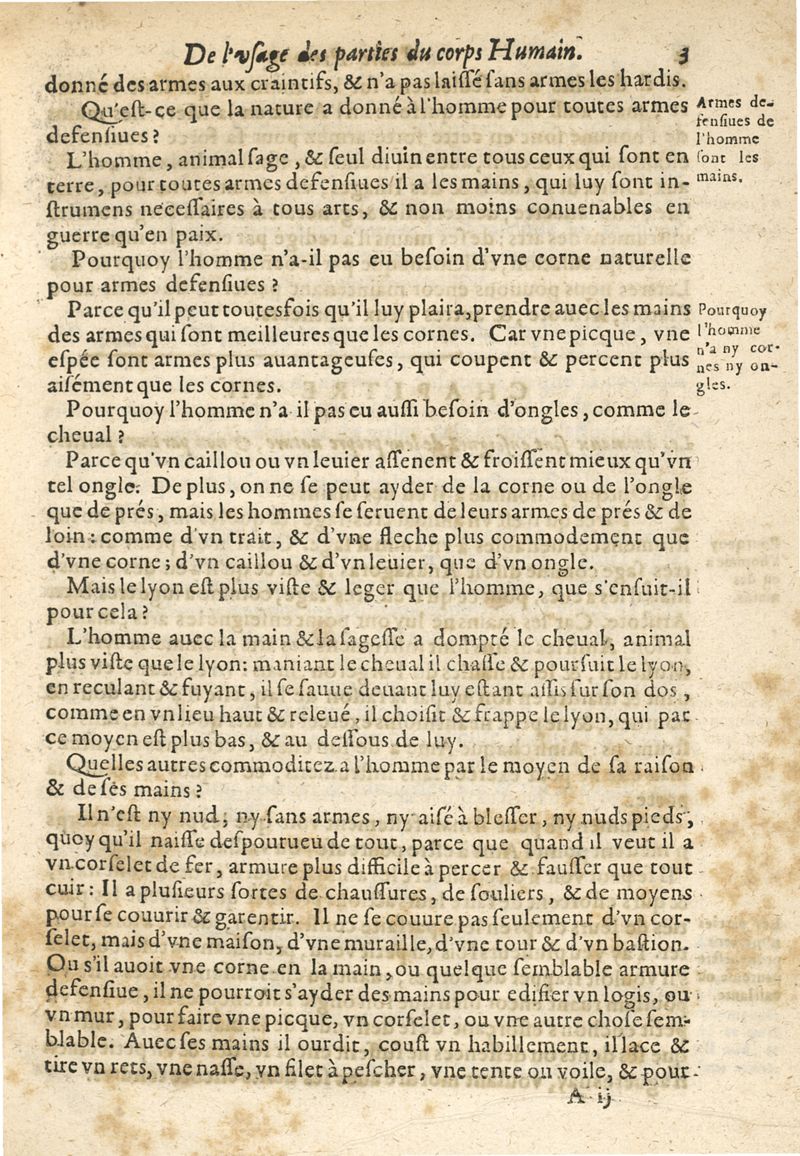 De l'vſage des parties du corps Humain. 3
donné des armes aux craintifs, & n'a pas laiſſé ſans armes les hardis.
Qu'eſt-ce que la nature a donné à l'homme pour toutes armes
defenſiues?
Armes de-
fenſiues de
l'homme
ſont les
mains.
L'homme, animal ſage, & ſeul diuin entre tous ceux qui ſont en
terre, pour toutes armes defenſiues il a les mains, qui luy ſont in-
ſtrumens neceſſaires à tous arts, & non moins conuenables en
guerre qu'en paix.
Pourquoy l'homme n'a-il pas eu beſoin d'vne corne naturelle
pour armes defenſiues?
Parce qu'il peut toutesfois qu'il luy plaira, prendre auec les mains
des armes qui ſont meilleures que les cornes. Car vne picque, vne
eſpée ſont armes plus auantageuſes, qui coupent & percent plus
aiſément que les cornes.
Pourquoy
l'homme
n'a ny cor-
nes ny on-
gles.
Pourquoy l'homme n'a il pas eu auſſi beſoin d'ongles, comme le
cheual?
Parce qu'vn caillou ou vn leuier aſſenent & froiſſent mieux qu'vn
tel ongle. De plus, on ne ſe peut ayder de la corne ou de l'ongle
que de prés, mais les hommes ſe ſeruent de leurs armes de prés & de
loin: comme d'vn trait, & d'vne fleche plus commodement que
d'vne corne; d'vn caillou & d'vn leuier, que d'vn ongle.
Mais le lyon eſt plus viſte & leger que l'homme, que s'enſuit-il
pour cela?
L'homme auec la main & la ſageſſe a dompté le cheual, animal
plus viſte que le lyon: maniant le cheual il chaſſe & pourſuit le lyon,
en reculant & fuyant, il ſe ſauue deuant luy eſtant aſſis ſur ſon dos,
comme en vn lieu haut & releué, il choiſit & frappe le lyon, qui par
ce moyen eſt plus bas, & au deſſous de luy.
Quelles autres commoditez a l'homme par le moyen de ſa raiſon
& de ſes mains?
Il n'eſt ny nud, ny ſans armes, ny aiſé à bleſſer, ny nuds pieds,
quoy qu'il naiſſe deſpourueu de tout, parce que quand il veut il a
vn corſelet de fer, armure plus difficile à percer & fauſſer que tout
cuir: Il a pluſieurs ſortes de chauſſures, de ſouliers, & de moyens
pour ſe couurir & garentir. Il ne ſe couure pas ſeulement d'vn cor-
ſelet, mais d'vne maiſon, d'vne muraille, d'vne tour & d'vn baſtion.
Ou s'il auoit vne corne en la main, ou quelque ſemblable armure
defenſiue, il ne pourroit s'ayder des mains pour edifier vn logis, ou
vn mur, pour faire vne picque, vn corſelet, ou vne autre choſe ſem-
blable. Auec ſes mains il ourdit, couſt vn habillement, il lace &
tire vn rets, vne naſſe, vn filet à peſcher, vne tente ou voile, & pour-
A ij